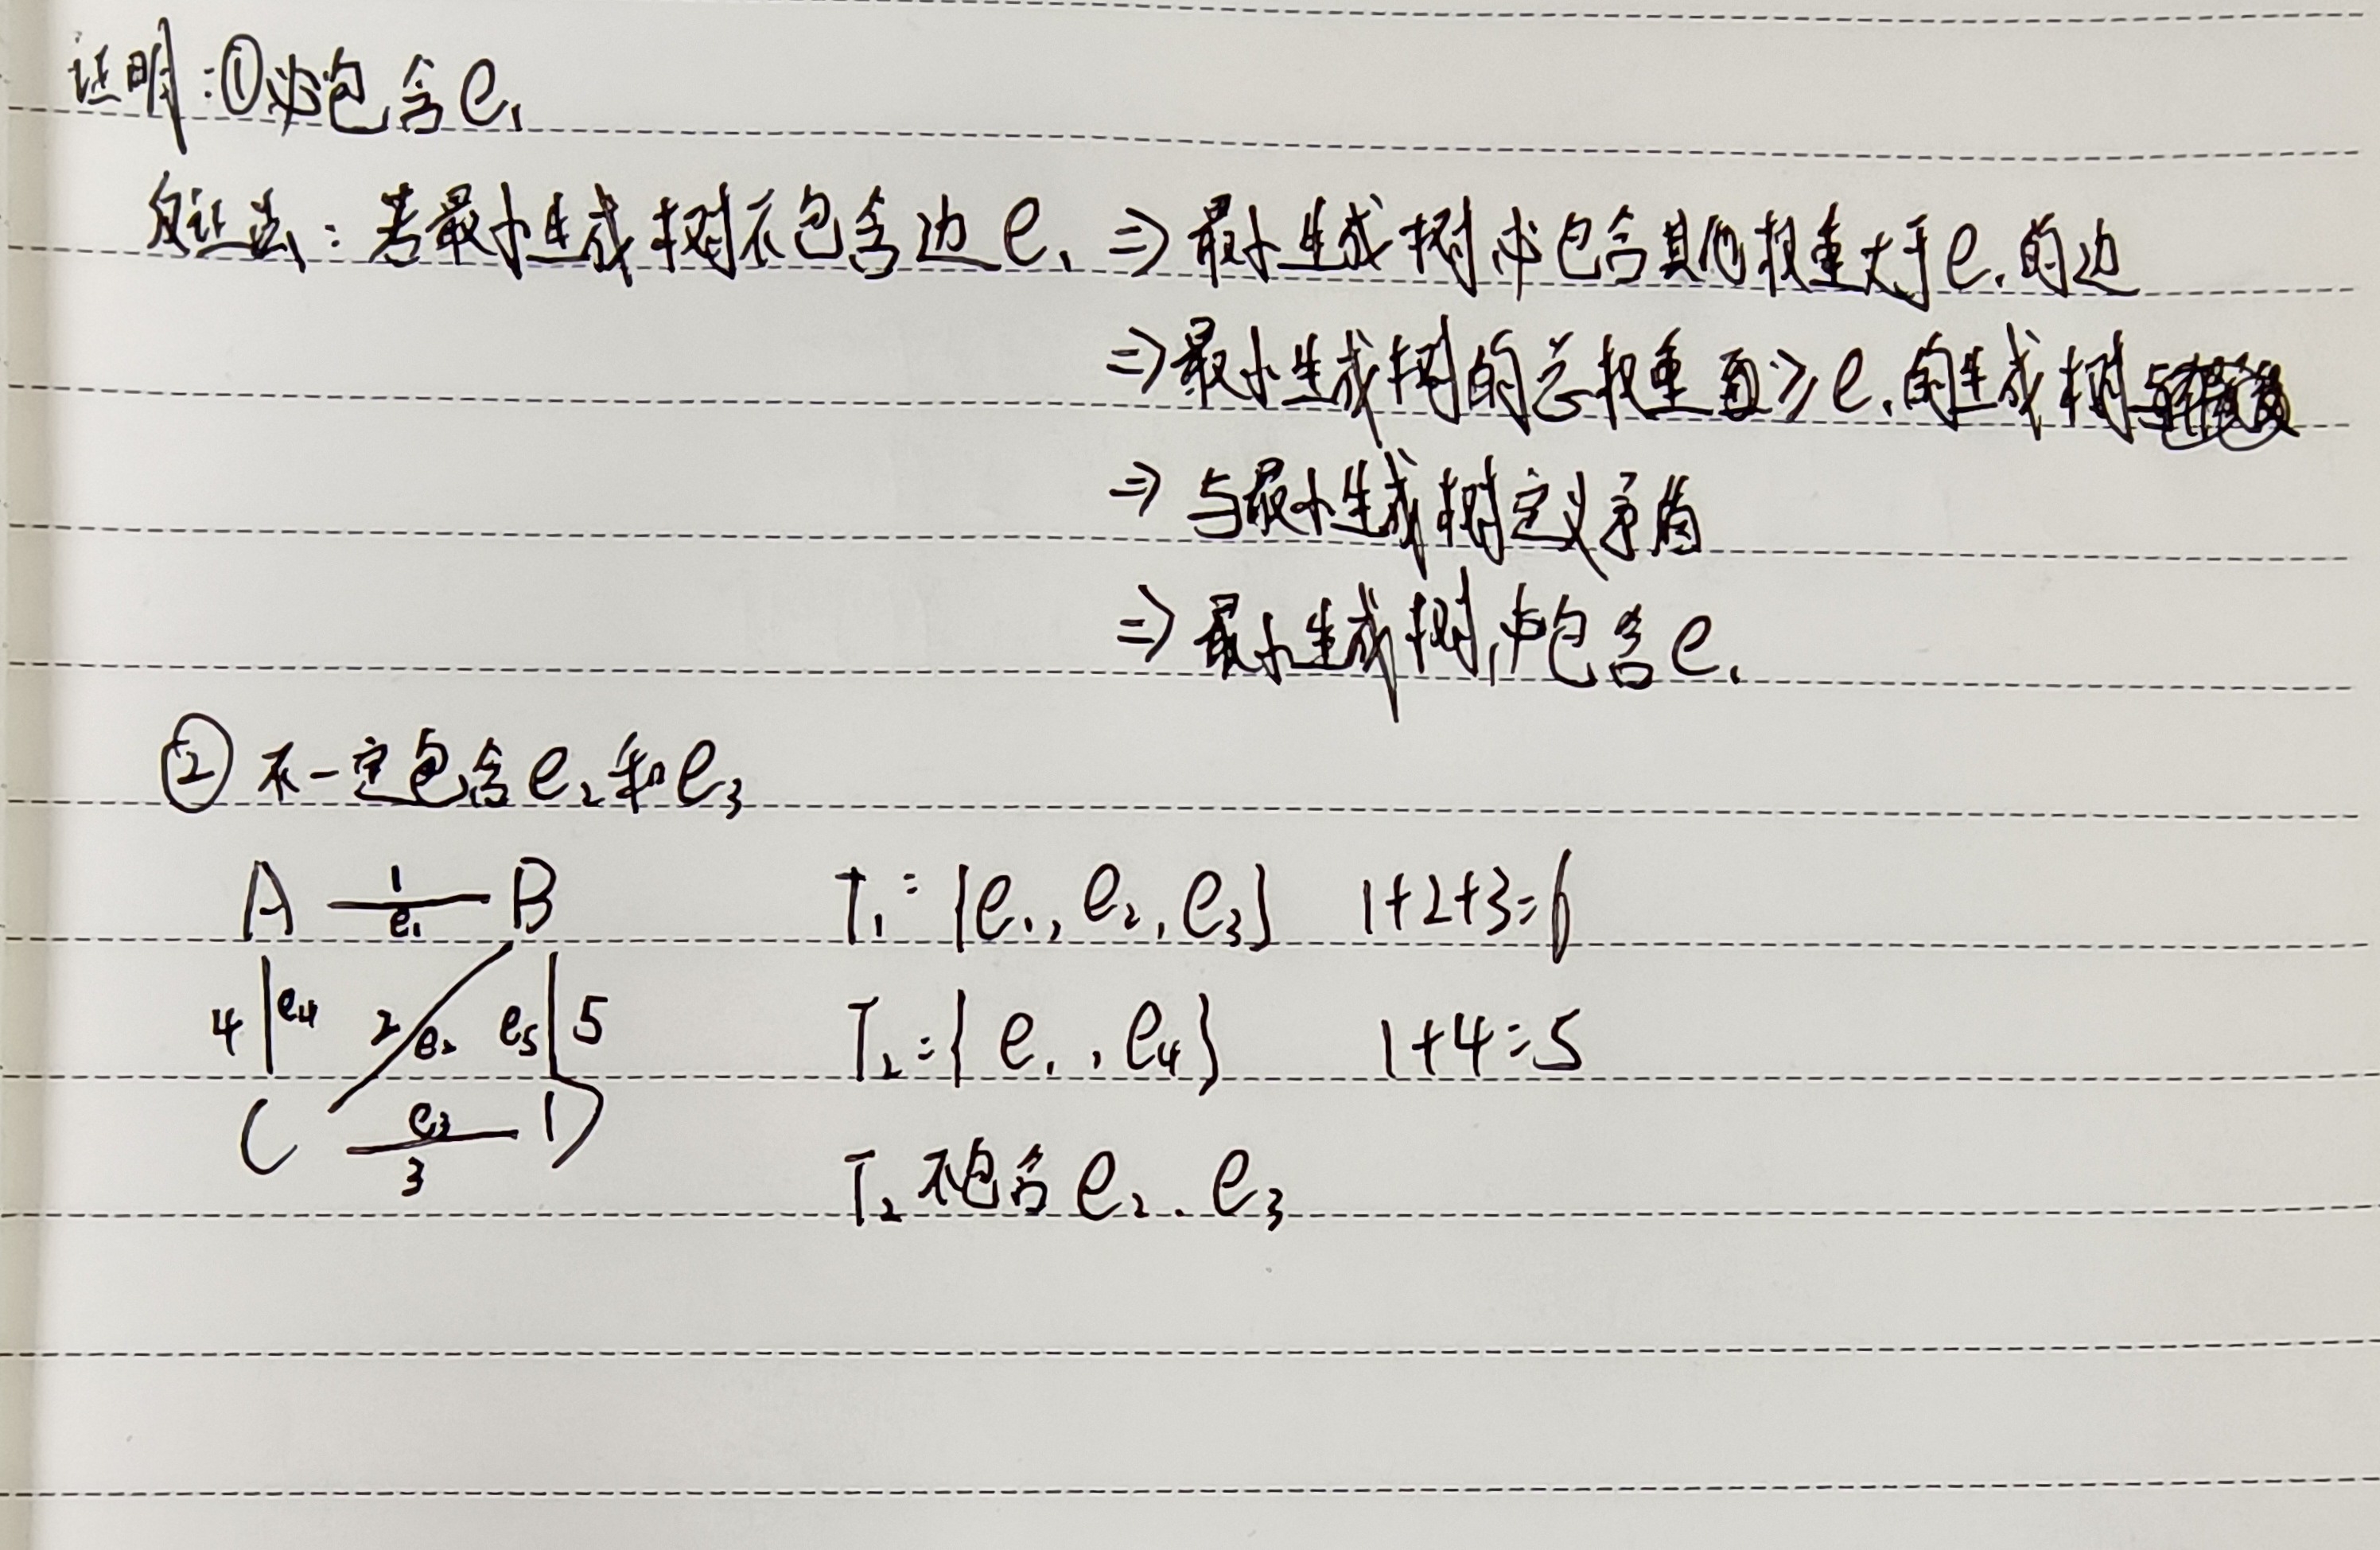 证明：①必包含e₁
反证法：若最小生成树不包含边e₁ ⇒ 最小生成树必包含其他权重大于e₁的边
⇒ 最小生成树的总权重 ≥ e₁的生成树
⇒ 与最小生成树定义矛盾
⇒ 最小生成树必包含e₁
② 不一定包含e₂和e₃
A 1 e₁ B
4 e₄ 2 e₂ e₅ 5
C e₃ 3 D
T₁={e₁, e₂, e₃} 1+2+3=6
T₂={e₁, e₄} 1+4=5
T₂不包含e₂、e₃